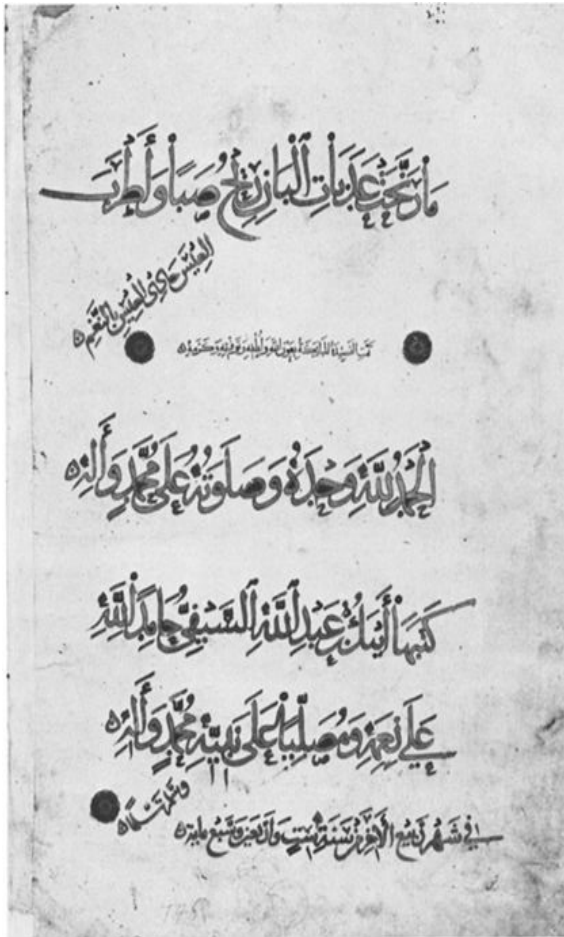 مَا رَنَّحَتْ عَذَبَاتِ الْبَانِ رِيحُ صَبًا وَأَطْرَبَ
الْعِيسَ حَادِي الْعِيسِ بِالنَّغَمِ
تمت القصيدة المباركة بعون الله ولطفه وتوفيقه وكرمه
الحَمْدُ لِلَّهِ وَحْدَهُ وَصَلَوتُهُ عَلَى مُحَمَّدٍ وَأَلِهِ
كَتَبَهَا أَيْبَكُ بْنُ عَبْدِ اللَّهِ السَّيْفِيُّ حَامِدًا لِلَّهِ
عَلَى نِعَمِهِ وَمُصَلِّيًا عَلَى نَبِيِّهِ مُحَمَّدٍ وَأَلِهِ
وَمُسَلِّمًا
في شهر ربيع الأخر من سنة ست وأربعين وسبع ماية